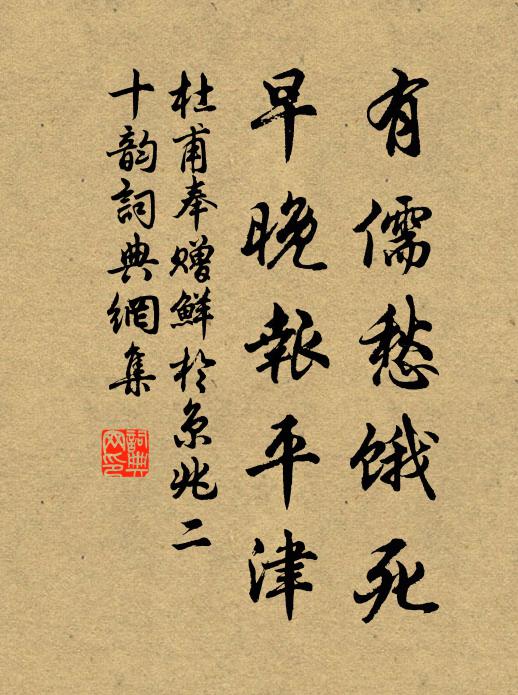 有儒愁饿死
早晚報平津
杜甫奉赠鮮於京兆二
十韵詞典網集
詞典
网印